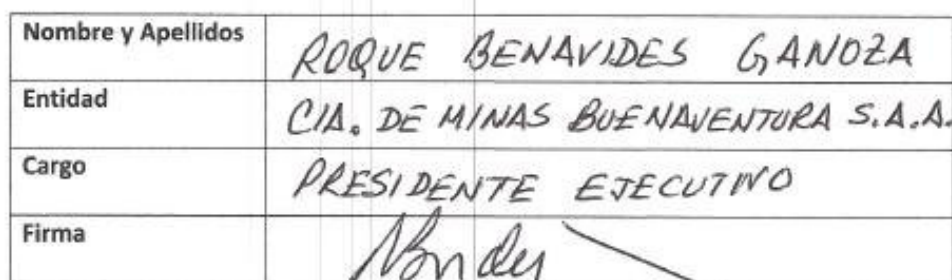 Nombre y Apellidos ROQUE BENAVIDES GANOZA
Entidad CIA. DE MINAS BUENAVENTURA S.A.A.
Cargo PRESIDENTE EJECUTIVO
Firma